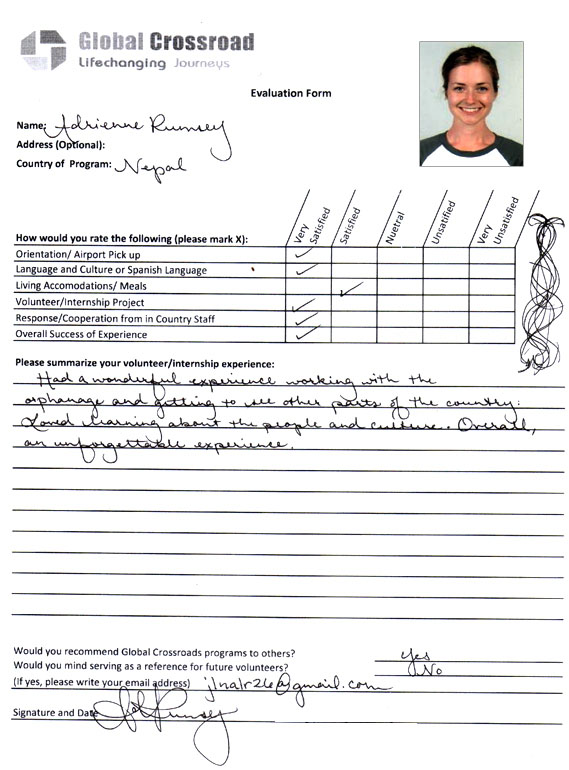 Global Crossroad
Lifechanging Journeys
Evaluation Form
Name: Adrienne Rumsey
Address (Optional):
Country of Program: Nepal
How would you rate the following (please mark X):
Very Satisfied
Satisfied
Nuetral
Unsatified
Very Unsatisfied
Orientation/ Airport Pick up
Language and Culture or Spanish Language
Living Accomodations/ Meals
Volunteer/Internship Project
Response/Cooperation from in Country Staff
Overall Success of Experience
Please summarize your volunteer/internship experience:
Had a wonderful experience working with the
orphanage and getting to see other parts of the country.
Loved learning about the people and culture. Overall,
an unforgettable experience.
Would you recommend Global Crossroads programs to others? Yes
Would you mind serving as a reference for future volunteers? No
(If yes, please write your email address) @gmail.com
Signature and Date Rumsey